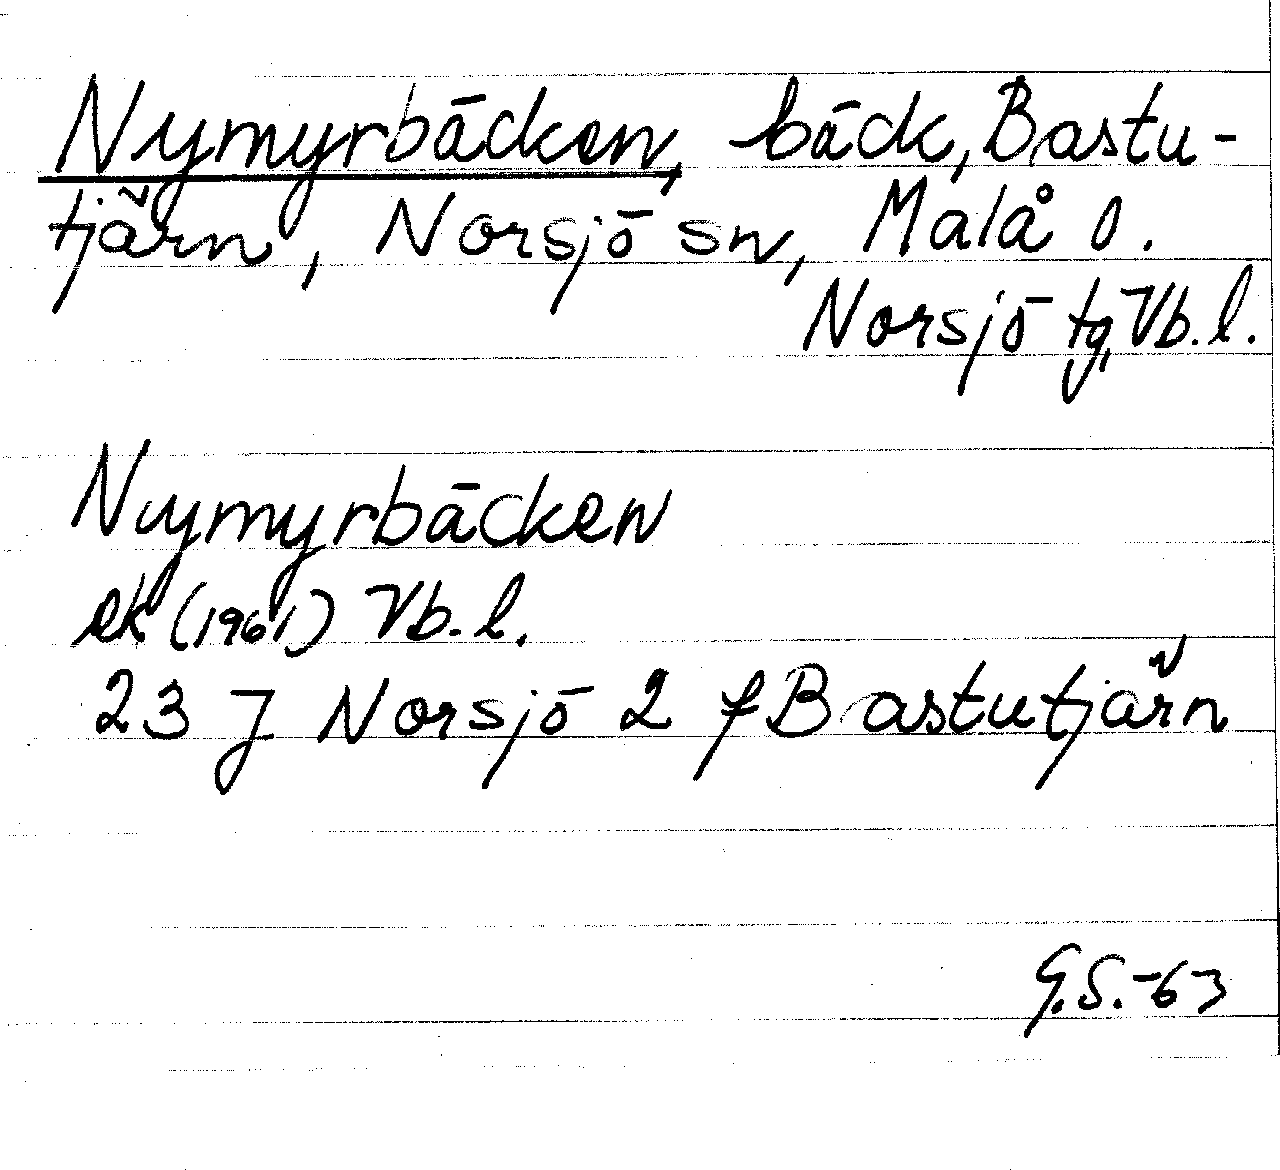 Nymyrbäcken, bäck, Bastu-
tjärn, Norsjö sn, Malå o.
Norsjö tg, Vb. l.
Nymyrbäcken
ek (1961) Vb. l.
23 J Norsjö 2 f Bastutjärn
G.S.-63